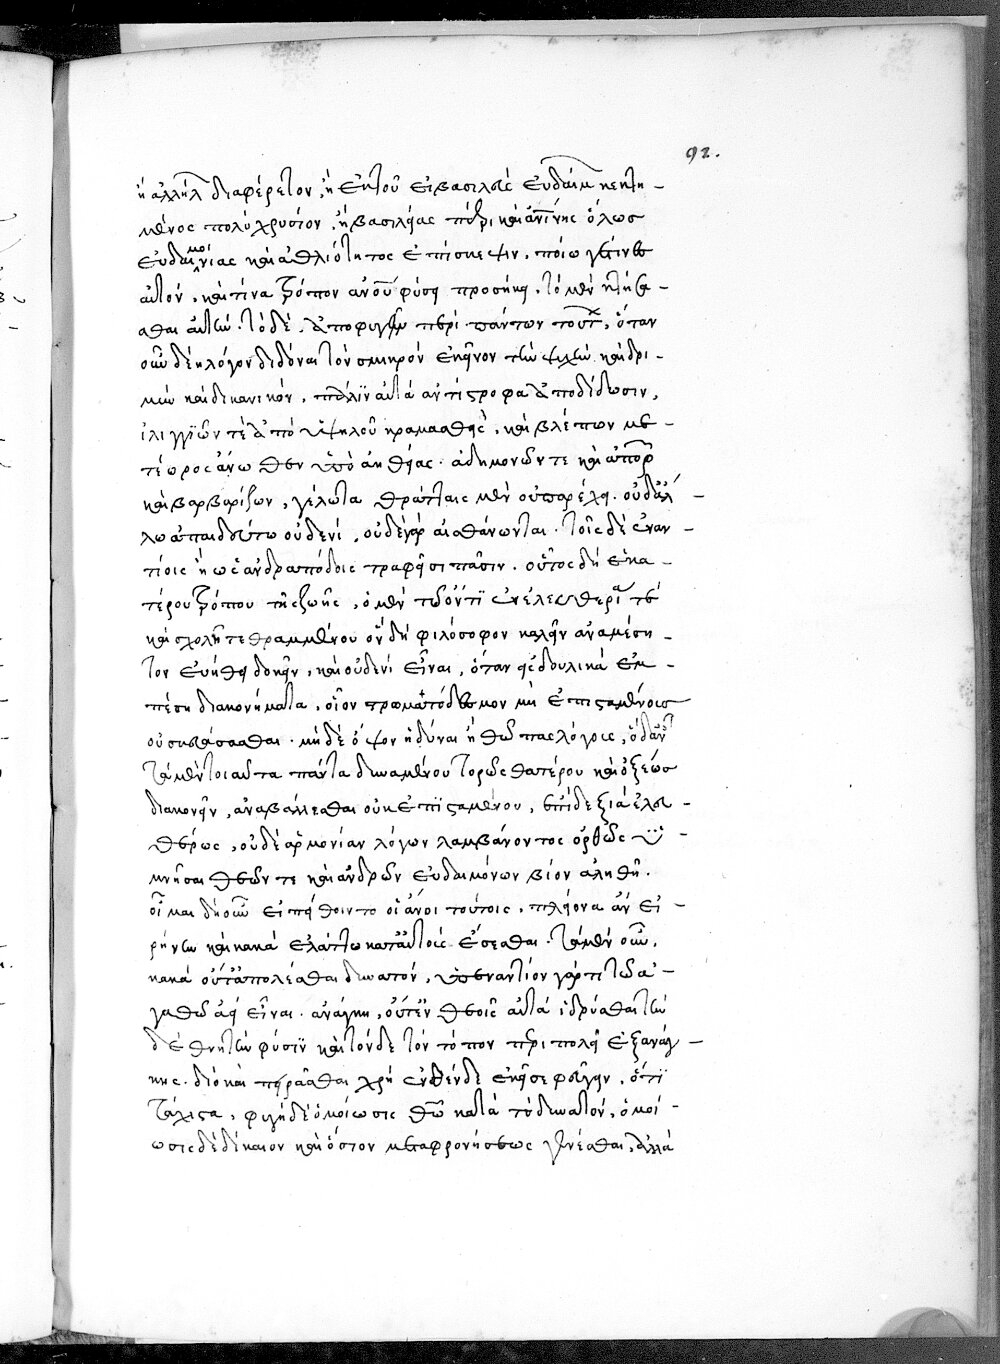 92.
ἢ ἀλλήλ διαφέρετον, ἢ ἐκ τοῦ εἰ βασιλεὺς εὐδαίμ κεκτη-
μένος πολὺ χρυσίον, ἢ βασιλείας πέρι καὶ ἀνίνης ὅλως
εὐδαιμονίας καὶ ἀθλιότητος ἐπίσκεψιν, ποίω γέ τινε
αὐτόν, καὶ τίνα τρόπον ἀνοῦ φύσῃ προσήκῃ, τὸ μὲν κτήσα-
σθαι αὐτῶν. τὸ δὲ, ἀποφυγεῖν περὶ πάντων τούτ, ὅταν
οὖν δέῃ λόγον διδόναι τὸν σμικρὸν ἐκεῖνον τὴν ψυχὴν καὶ δρι-
μὺν καὶ δικανικόν, πάλιν αὐτὰ ἀντίστροφα ἀποδίδωσιν,
ἰλιγγιῶν τὲ ἀπὸ ὑψηλοῦ κρεμασθεὶς, καὶ βλέπων με-
τέωρος ἄνωθεν ὑπὸ ἀηθείας. ἀδημονῶν τε καὶ ἀπορ
καὶ βαρβαρίζων, γέλωτα θράτταις μὲν οὐ παρέχῃ. οὐδ' ἄλ-
λω ἀπαιδεύτω οὐδενί, οὐδὲ γὰρ αἰσθάνονται. τοῖς δὲ ἐναν-
τίοις ἢ ὡς ἀνδραπόδοις τραφεῖσι πᾶσιν. οὗτος δὴ ἑκα-
τέρου τρόπου τῆς ζωῆς, ὁ μὲν τῷ ὄντι ἐν ἐλευθερία τὲ
καὶ σχολῆ τεθραμμένου ὃν δὴ φιλόσοφον καλεῖν ἀναμέση-
τον εὐήθῃ δοκεῖν, καὶ οὐδενὶ εἶναι, ὅταν εἰς δουλικὰ ἐμ-
πέσῃ διακονήματα, οἷον στρωματόδεσμον μὴ ἐπισταμένοις
οὐ σκευάσασθαι. μὴ δὲ ὄψον ἡδύναι ἢ θῶπας λόγοις, ὁ δ' ἂν
τὰ μὲν τοιαῦτα πάντα δυναμένου τορῶς θατέρου καὶ ὀξέως
διακονεῖν, ἀναβάλλεσθαι οὐκ ἐπισταμένου, ἐπὶ δεξιὰ ἐλευ-
θέρως, οὐδὲ ἁρμονίαν λόγων λαμβάνοντος ὀρθῶς ὑ-
μνῆσαι θεῶν τε καὶ ἀνδρῶν εὐδαιμόνων βίον ἀληθῆ.
οἶμαι δὴ οὖν εἰ πείθοιντο οἱ ἄνοι τούτοις, πλείονα ἂν εἰ-
ρήνην καὶ κακὰ ἐλάττω κατ' αὐτοὺς ἔσεσθαι. τὰ μὲν οὖν,
κακὰ οὔτ' ἀπολέσθαι δυνατόν, ὑπεναντίον γάρ τι τῷ ἀ-
γαθῷ ἀεὶ εἶναι. ἀνάγκη, οὔτ' ἐν θεοῖς αὐτὰ ἱδρύσθαι τὴν
δὲ θνητὴν φύσιν καὶ τόνδε τὸν τόπον περὶπολεῖ ἐξ ἀνάγ-
κης. διὸ καὶ πειρᾶσθαι χρὴ ἐνθένδε ἐκεῖσε φεύγειν, ὅτι
τάχιστα, φυγὴ δὲ ὁμοίωσις θῶ κατὰ τὸ δυνατόν, ὁμοί-
ωσις δὲ δίκαιον καὶ ὅσιον μετὰ φρονήσεως γενέσθαι, ἀλλὰ